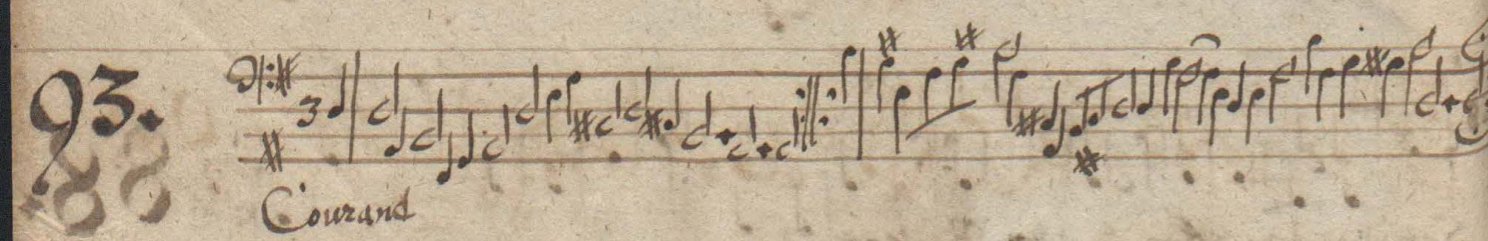 93.
3
Courand